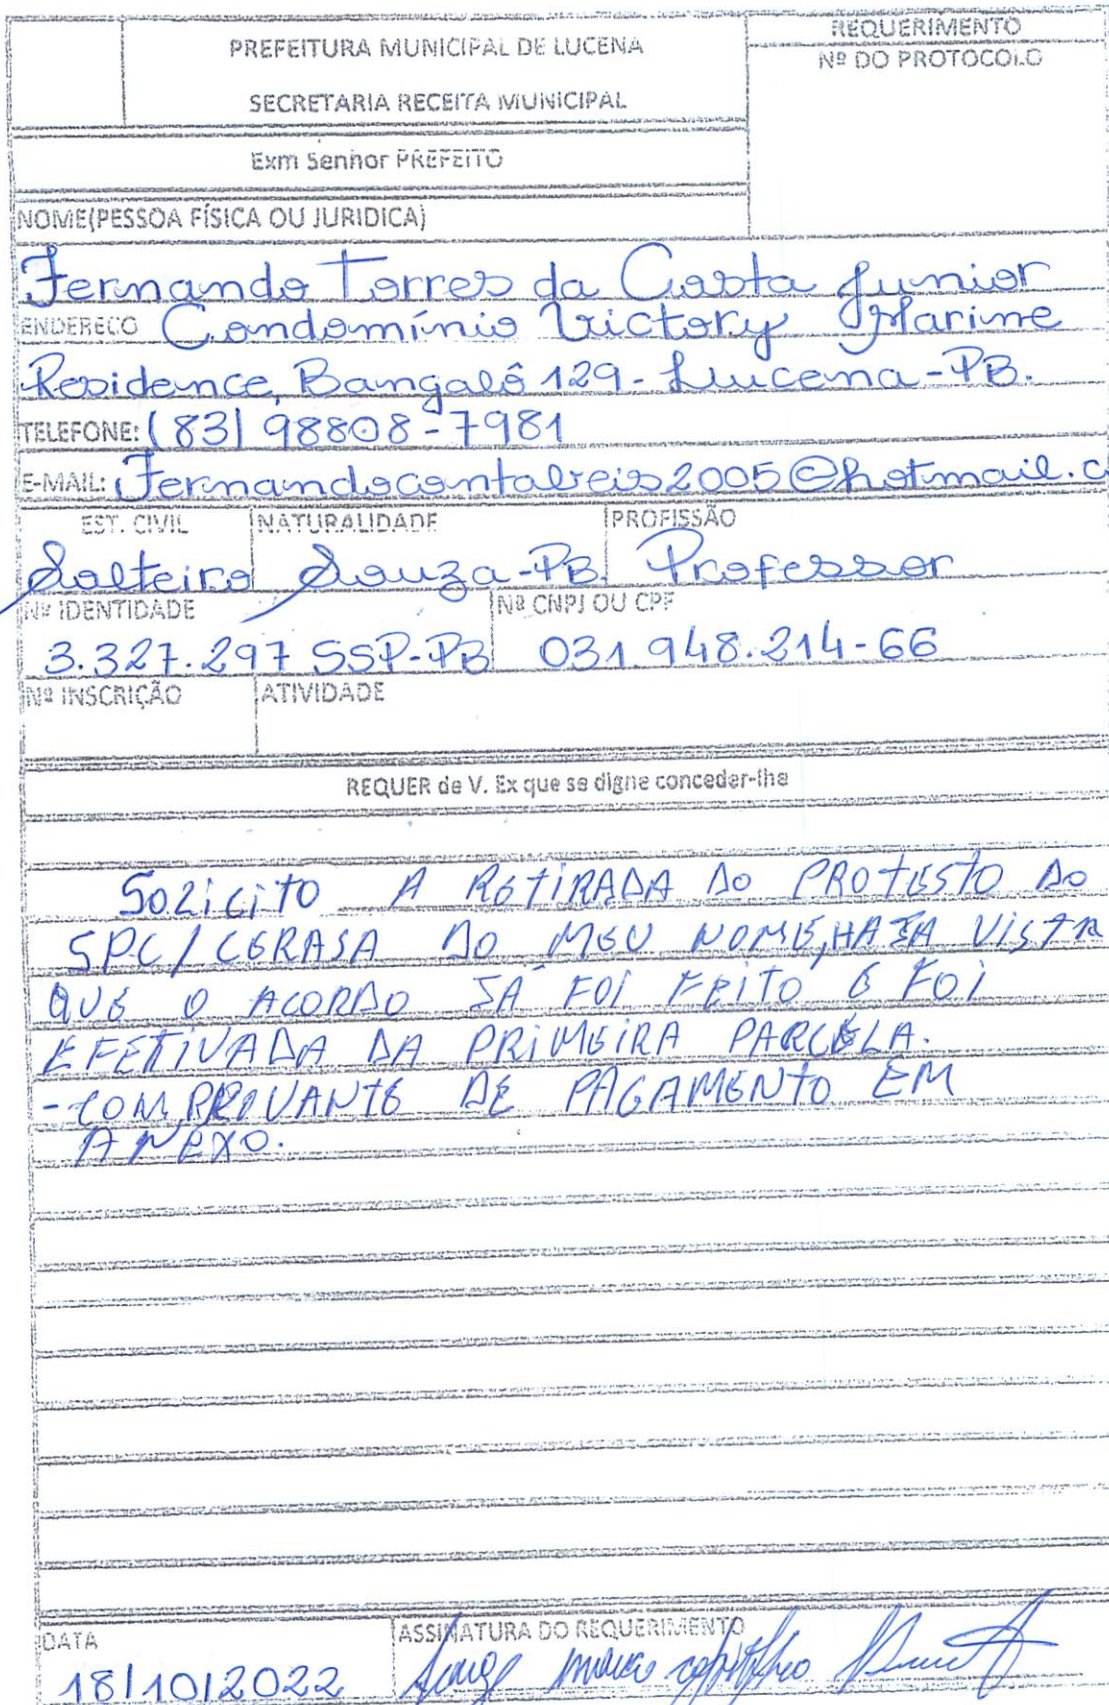 REQUERIMENTO
PREFEITURA MUNICIPAL DE LUCENA
Nº DO PROTOCOLO
SECRETARIA RECEITA MUNICIPAL
Exm Senhor PREFEITO
NOME(PESSOA FÍSICA OU JURIDICA)
Fernando Torres da Costa Junior
ENDEREÇO Condomínio Victory Marine
Residence, Bangalô 129 - Lucena-PB.
TELEFONE: (83) 98808-7981
E-MAIL: Fernandocontabeis2005@hotmail.c
EST. CIVIL NATURALIDADE PROFISSÃO
Solteiro Souza-PB. Professor
Nº IDENTIDADE Nº CNPJ OU CPF
3.327.297 SSP-PB 031.948.214-66
Nº INSCRIÇÃO ATIVIDADE
REQUER de V. Ex que se digne conceder-lhe
SOLICITO A RETIRADA DO PROTESTO DO
SPC/CERASA DO MEU NOME, HAJA VISTA
QUE O ACORDO JÁ FOI FEITO E FOI
EFETIVADA DA PRIMEIRA PARCELA.
- COMPROVANTE DE PAGAMENTO EM
ANEXO.
DATA ASSINATURA DO REQUERIMENTO
18/10/2022